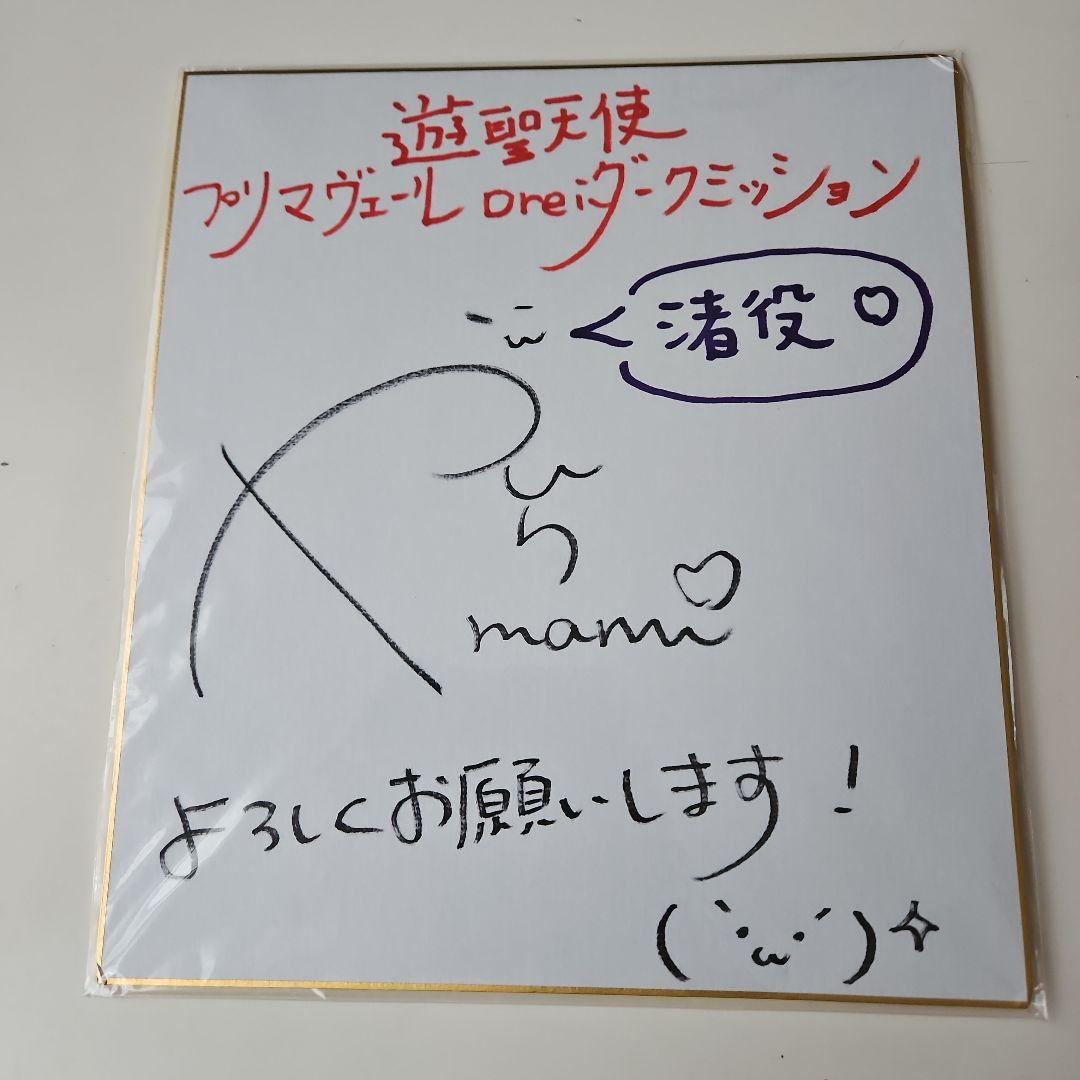 遊聖天使
プリマヴェール Dreiダークミッション
渚役♡
ひら
mami
よろしくお願いします！
(`･ω･´)✧